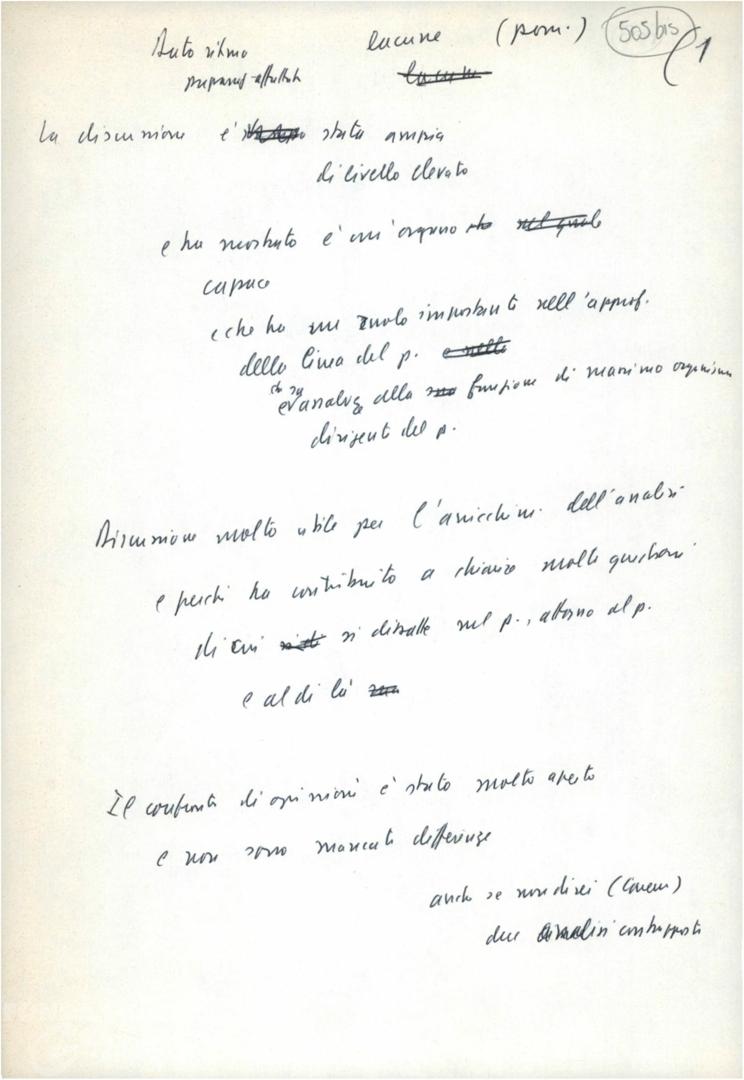 Auto ritmo lacune (pom.) 505 bis 1
preparaz. affrettata lacune
La discussione è stata ampia
di livello elevato
e ha mostrato è un'organo che nel quale
capace
e che ha un ruolo importante nell'approf.
della linea del p. e nella
ch sia
e analoga alla sua funzione di massimo organismo
dirigente del p.
Discussione molto utile per l'arricchim. dell'analisi
e perché ha contribuito a chiarire molte questioni
di cui si dibatte nel p., attorno al p.
e al di là
Il confronto di opinioni è stato molto aperto
e non sono mancate differenze
anche se non direi (Canew)
due analisi contrapposte